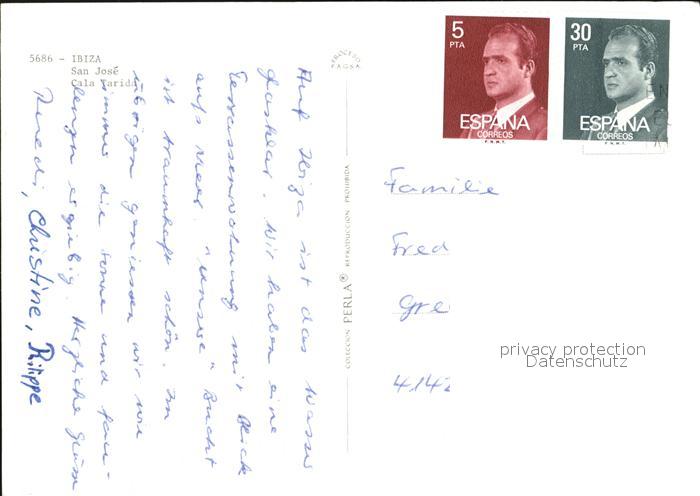 5686 - IBIZA
San José
Cala Tarida
PROCESO
F.A.G.S.A.
5
PTA
ESPAÑA
CORREOS
F.N.M.T.
30
PTA
ESPAÑA
CORREOS
F.N.M.T.
Auf Ibiza ist das Wasser
glasklar. Wir haben eine
Terrassenwohnung mit Blick
aufs Meer. "Unsere" Bucht
ist traumhaft schön. Im
übrigen geniessen wir wie
immer die Sonne und fau-
lenzen ergiebig. Herzliche Grüsse
Christine, Philippe
COLECCION PERLA® REPRODUCCION PROHIBIDA
Familie
Fred
Gre
4142
privacy protection
Datenschutz